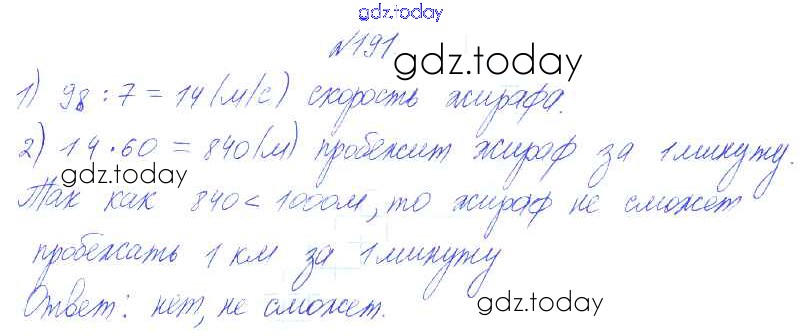 gdz.today
№191
gdz.today
1) 98 : 7 = 14 (м/с) скорость жирафа.
2) 14 · 60 = 840 (м) пробежит жираф за 1 минуту.
gdz.today
Так как 840 < 1000м, то жираф не сможет
пробежать 1 км за 1 минуту
Ответ: нет, не сможет.
gdz.today